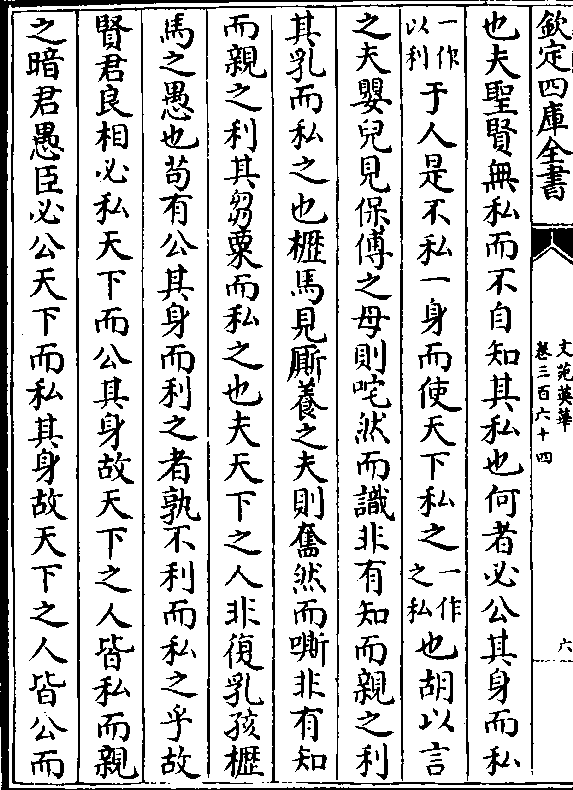 欽定四庫全書
文苑英華
卷三百六十四
六
也夫聖賢無私而不自知其私也何者必公其身而私
一作以利于人是不私一身而使天下私之一作之私也胡以言
之夫嬰兒見保傅之母則咤然而識非有知而親之利
其乳而私之也櫪馬見厮養之夫則奮然而嘶非有知
而親之利其芻粟而私之也夫天下之人非復乳孩櫪
馬之愚也苟有公其身而利之者孰不利而私之乎故
賢君良相必私天下而公其身故天下之人皆私而親
之暗君愚臣必公天下而私其身故天下之人皆公而